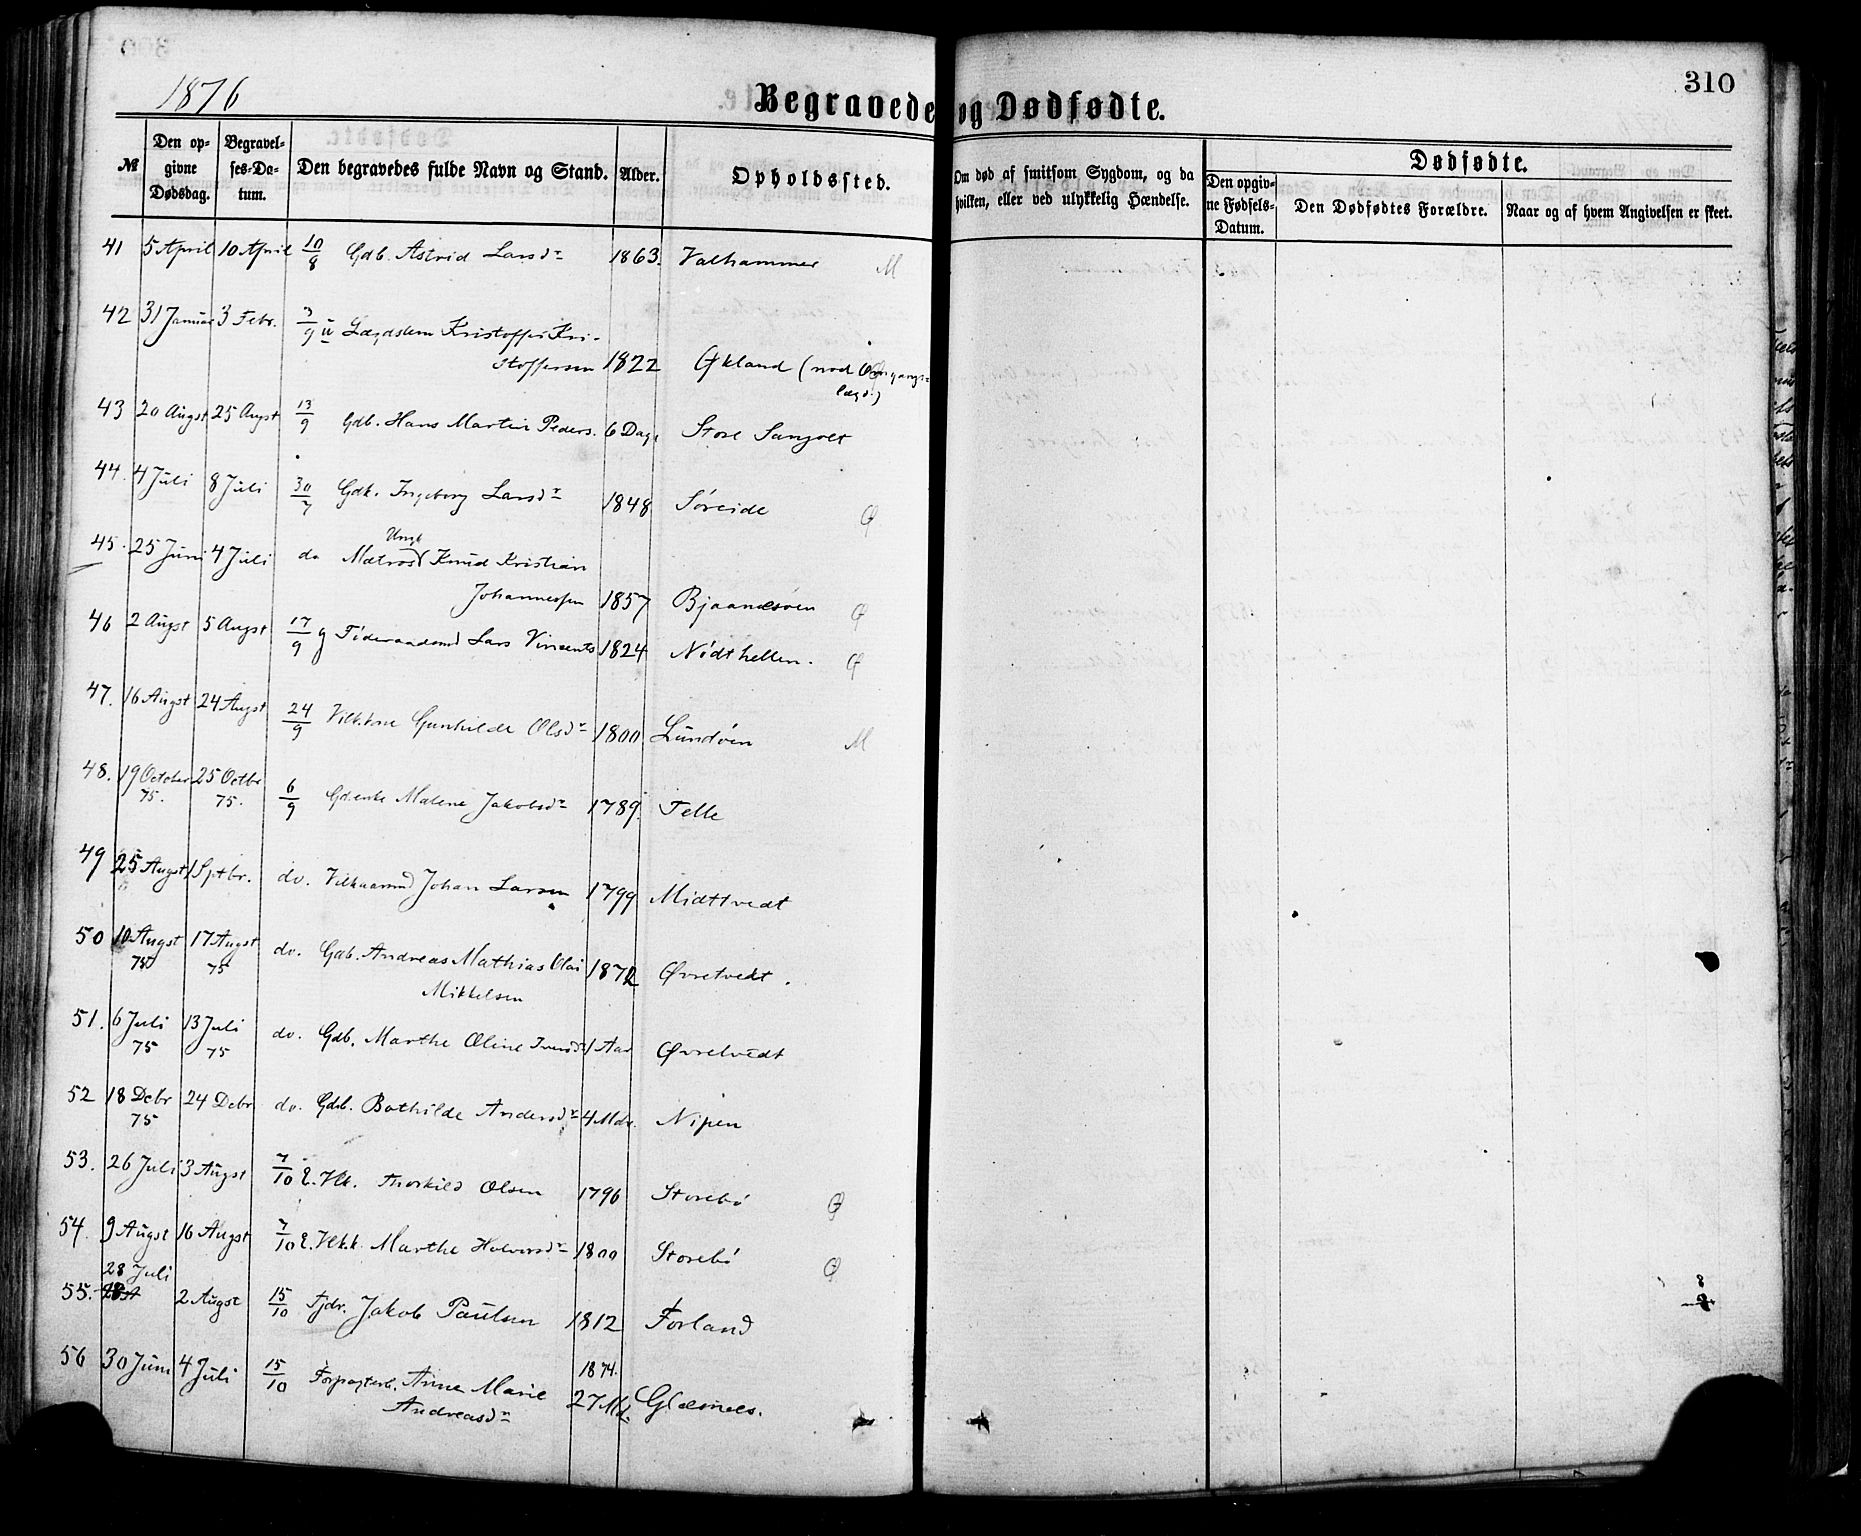 1876
Begravede og Dødfødte.
310
№ Den opgivne Dødsdag. Begravelses-Datum. Den begravedes fulde Navn og Stand. Alder. Opholdssted. Om død af smitsom Sygdom, og da hvilken, eller ved ulykkelig Hændelse. Dødfødte. Den opgivne Fødsels-Datum. Den Dødfødtes Forældre. Naar og af hvem Angivelsen er skeet.
41 5 April 10 April 10/8 Gdb. Astrid Larsdr 1863. Valhammer M
42 31 Januar 3 Febr. 3/9 u Lægdslem Kristoffer Kri-
stoffersen 1822 Økland (nod Omgangs-
lægd)
43 20 Augst 25 Augst 13/9 Gdb. Hans Martin Peders. 6 Dage Store Sangolt
44. 4 Juli 8 Juli 30/7 Gdk. Ingeborg Larsdr 1848 Søreide Ø
45. 25 Juni 4 Juli do Ungk Matros Knud Kristian
Johannessen 1857 Bjaanæsøen Ø
46 2 Augst 5 Augst 17/9 g Føderaadsmd Lars Vincents 1824 Nødthellen. Ø
47. 16 Augst 24 Augst 24/9 Vilk.kone Gunhilde Olsdr 1800 Lundøen M
48. 19 October 75. 25 Octbr 75. 6/9 Gd.enke Malene Jakobsdr 1789. Telle
49 25 Augst 1 Sptbr. do. Vilkaarmd Johan Larsen 1799 Midttvedt
50 10 Augst 75 17 Augst 75 do. Gdb. Andreas Mathias Olai
Mikkelsen 1872 Øvretvedt.
51. 6 Juli 75 13 Juli 75 do. Gdb. Marthe Oline Iversdr 1 Aar Øvretvedt
52 18 Debr 75 24 Debr do. Gdb. Bothilde Andersdr 4 Mdr. Nipen
53. 26 Juli 3 Augst 7/10 E. Vlk. Thorkild Olsen 1796 Storebø Ø
54. 9 Augst 16 Augst 7/10 E. Vlk.k. Marthe Halvorsdr 1800 Storebø Ø
55. 28 Juli 2 Augst 15/10 Fjdr. Jakob Paulsen 1812 Forland
56 30 Juni 4 Juli 15/10 Forpagterb. Anne Marie
Andreasdr 1874. 27 Md. Glæsnæs.